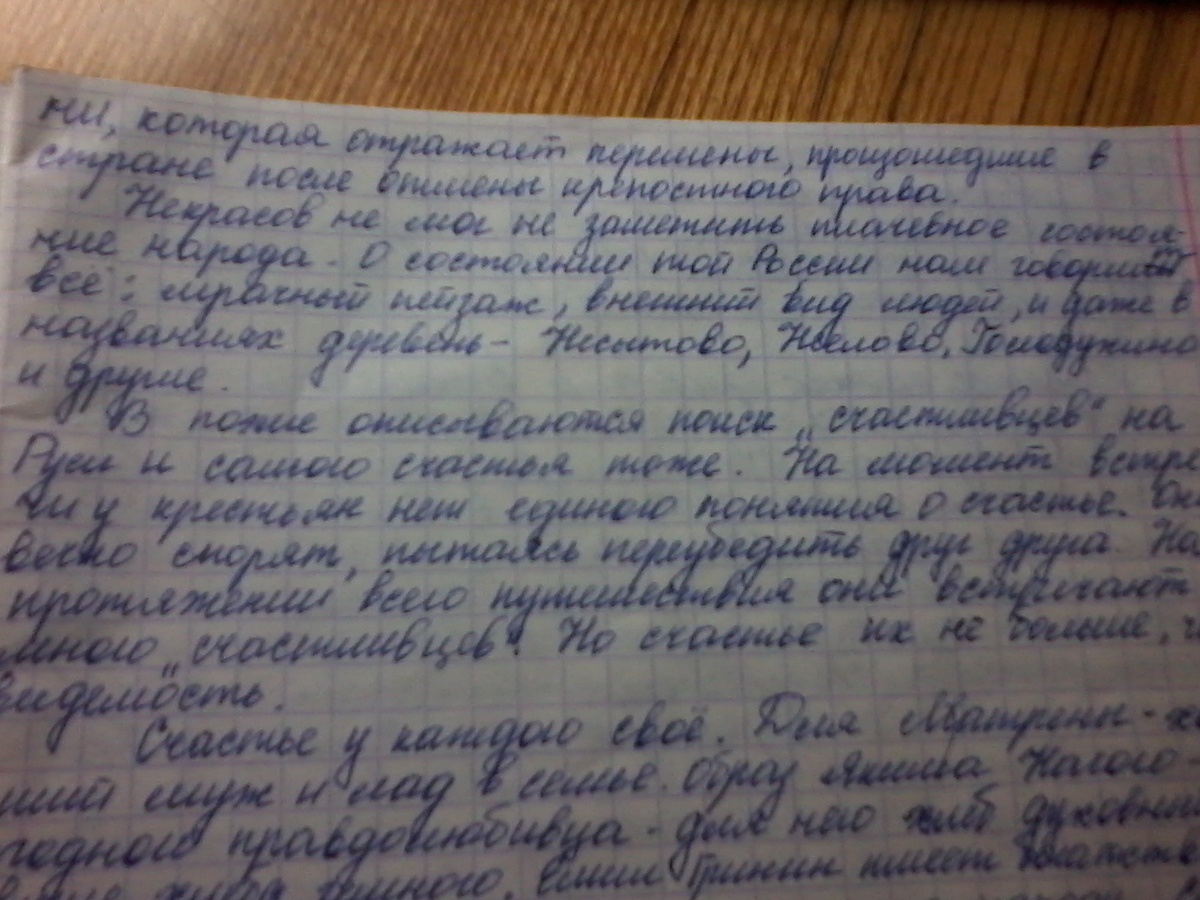 ни, которая отражает перемены, прощошедшие в
стране после отмены крепостного права.
Некрасов не мог не заметить плачевное состоя-
ние народа. О состоянии той России нам говорит
всё: мрачный пейзаж, внешний вид людей, и даже в
названиях деревень - Несытово, Неелово, Голодухино
и другие.
В поэме описываются поиск „счастливцев“ на
Руси и самого счастья тоже. На момент встре
чи у крестьян нет единого понятия о счастье. Они
вечно спорят, пытаясь переубедить друг друга. На
протяжении всего путешествия они встречают
много „счастливцев“. Но счастье их не больше, ч
видемость.
Счастье у каждого своё. Для Матрены - х
ший муж и лад в семье. Образ Якима Нагого -
годного правдолюбивца - для него хлеб духовный
хлеба земного. Ермил Гирин имеет богатств